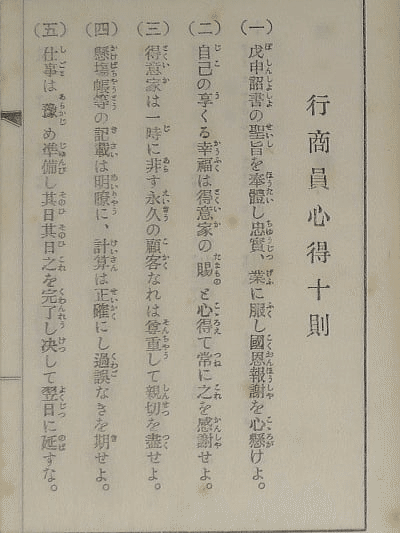 行商員心得十則
(一)戊申詔書の聖旨を奉體し忠實、業に服し國恩報謝を心懸けよ。
(二)自己の享くる幸福は得意家の賜と心得て常に之を感謝せよ。
(三)得意家は一時に非す永久の顧客なれは尊重して親切を盡せよ。
(四)懸塲帳等の記載は明瞭に、計算は正確にし過誤なきを期せよ。
(五)仕事は豫め準備し其日其日之を完了し决して翌日に延すな。